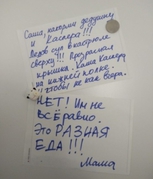 Саша, накорми дедушку
и Каспера!!!
Дедов суп в кастрюле
сверху!!! Прозрачная
крышка. Каша Касперу
на нижней полке.
И чтобы не как вчера.
НЕТ! Им не
всё равно.
Это РАЗНАЯ
ЕДА!!!
Мама